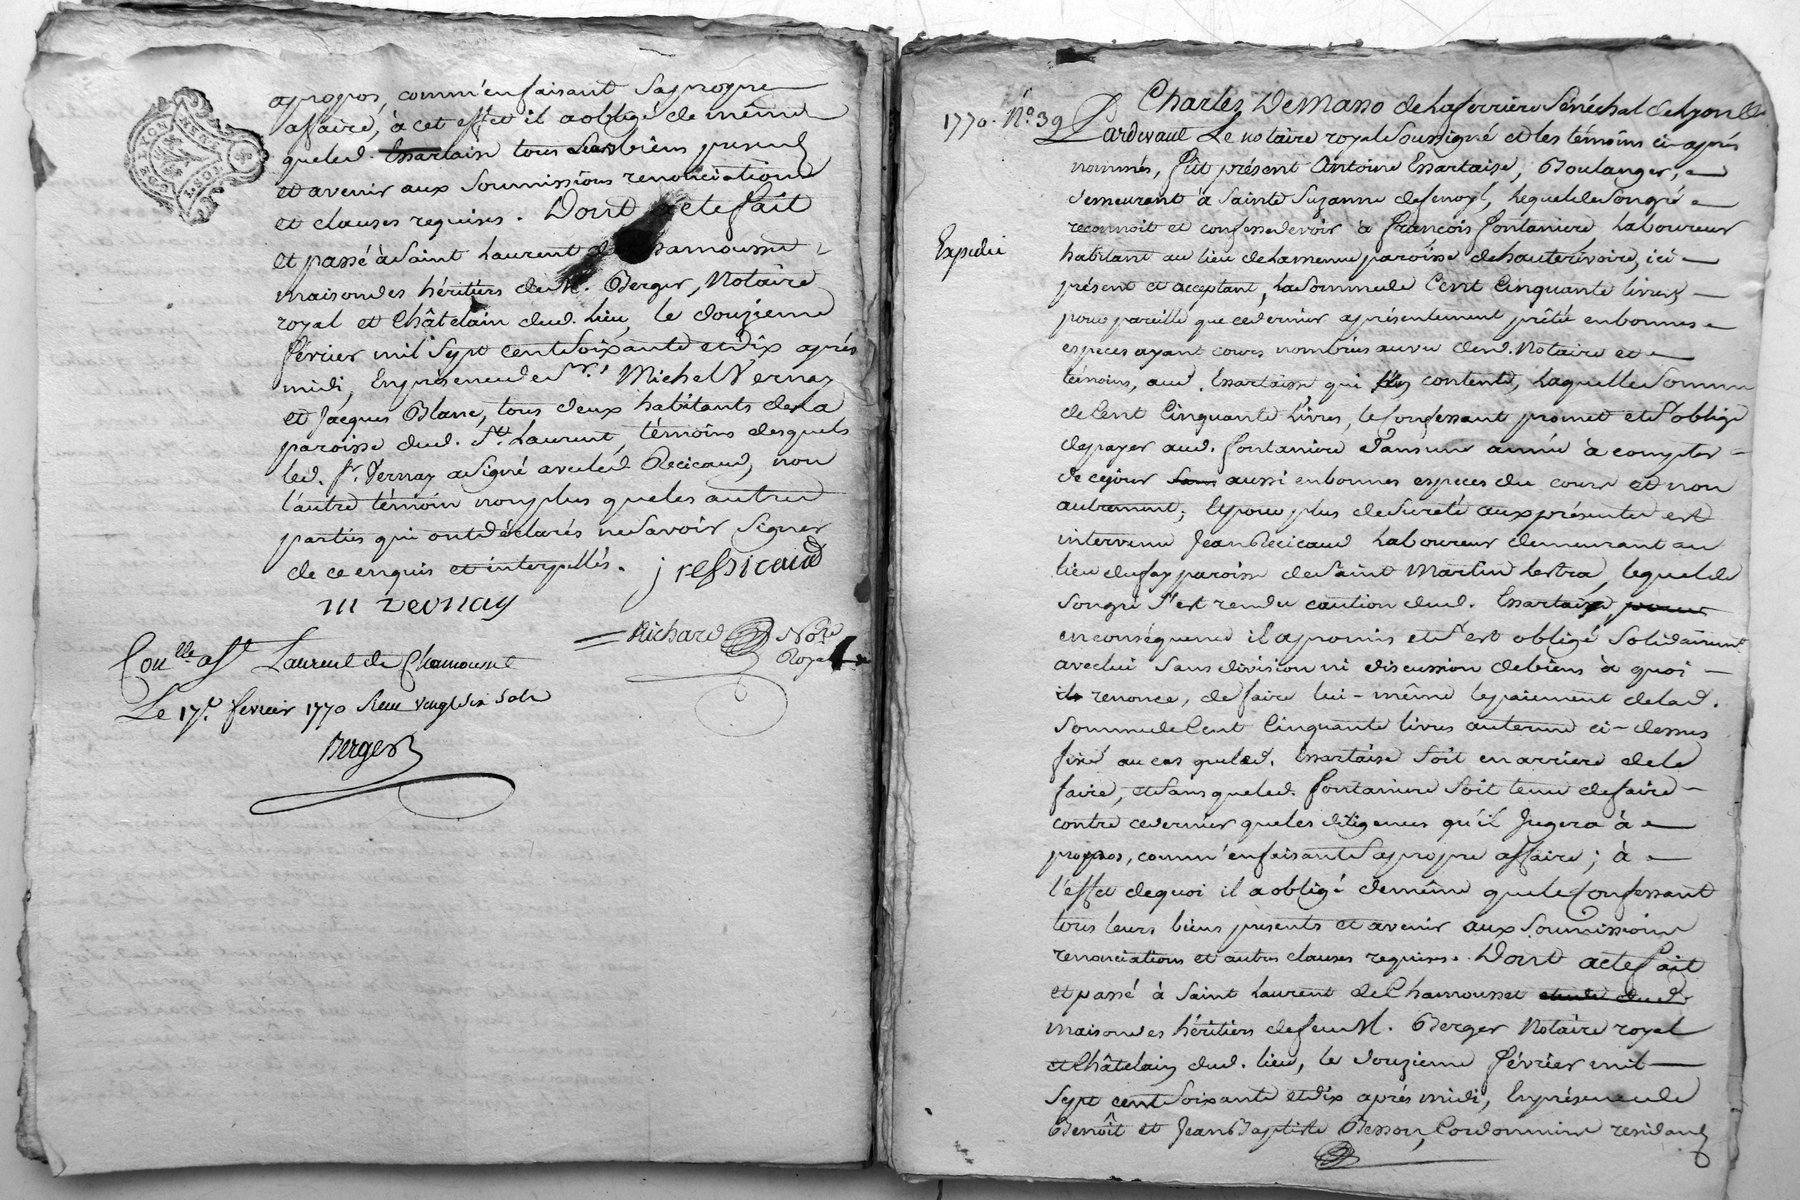 apropos, comm'en faisant sa propre
affaire, à cet effet il a obligé de même
que led. Essartaise tous leurs biens present
et avenir aux soumissions renonciations
et clauses requises. Dont acte fait
et passé à Saint Laurent de Chamousset
maison des héritiers de M. Berger, Notaire
royal et Châtelain dud. lieu, le douzieme
février mil sept cent soixante et dix après
midi, En presence de Sr. Michel Vernay
et Jacques Blanc, tous deux habitants de la
paroisse dud. St. Laurent, témoins desquels
led. Sr. Vernay a signé avec led Recicaud, non
l'autre témoin non plus que les autres
parties qui ont déclarés ne savoir signer
de ce enquis et interpellés. j ressicaud
m vernay
Richard Nore
Royal
Con.lle a St Laurent de Chamousset
Le 17e. fevrier 1770 Reçu vingt six sols
Berger
LYON
1770. No. 39
Expedié
Charles Demano de Laferriere Sénéchal de Lyon &.
Pardevant Le notaire royal soussigné et les témoins ci-après
nommés, fut présent Antoine Essartaise, Boulanger,
demeurant à Sainte Suzanne lequel de son gré
reconnoit et confesse devoir à François Fontaniere Laboureur
habitant au lieu de la menue paroisse de hauterivoire, ici
présent et acceptant, la somme de Cent Cinquante livres
pour pareille que ce dernier a présentement prêté en bonnes
especes ayant cours nombrées au vu dud. Notaire et
témoins, aud. Essartaise qui s'en contente, Laquelle somme
de Cent Cinquante Livres, le Confessant promet et s'oblige
de payer aud. Fontaniere dans une année à compter
de ce jour sans aussi en bonnes especes du cours et non
autrement; Et pour plus de sureté aux présentes est
intervenu Jean Recicaud Laboureur demeurant au
lieu du fay paroisse de Saint Martin Lestra, lequel de
son gré s'est rendu caution dud. Essartaise
en conséquence il a promis et s'est obligé solidairemt
avec lui sans division ni discussion de biens à quoi
il renonce, de faire lui-même le paiement de lad.
somme de Cent Cinquante livres au terme ci-dessus
fixé au cas que led. Essartaise soit en arriere de le
faire, et sans que led. Fontaniere soit tenu de faire
contre ce dernier que les diligences qu'il Jugera à
propos, comm'en faisant sa propre affaire; à
l'effet de quoi il a obligé de même que le Confessant
tous leurs biens presents et avenir aux soumissions
renonciations et autres clauses requises. Dont acte fait
et passé à Saint Laurent de Chamousset
maison des héritiers de feu M. Berger Notaire royal
et Châtelain dud. lieu, le douzieme février mil
sept cent soixante et dix après midi, En présence de
Benoît et Jean Baptiste Besson, Cordonniers residants